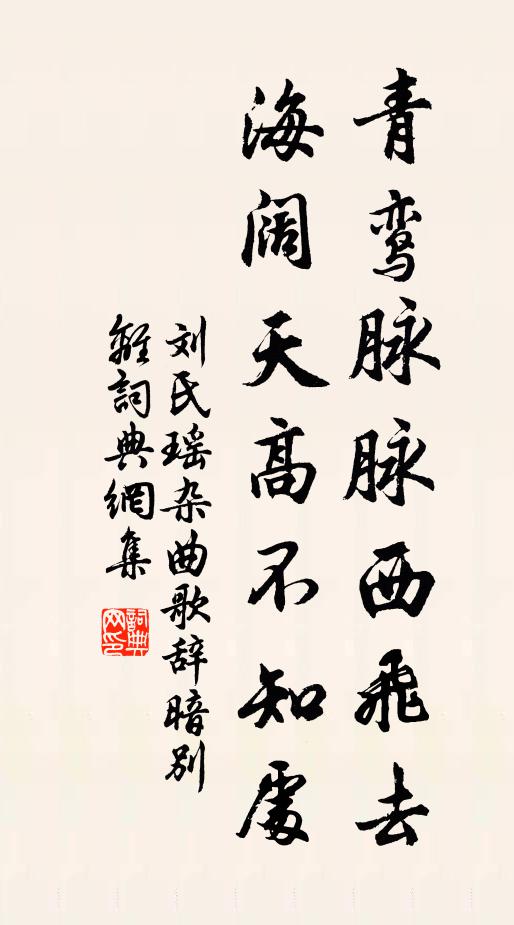 青鸾脉脉西飛去
海阔天高不知處
刘氏瑶杂曲歌辞暗别
雜詞典網集
詞典
网印